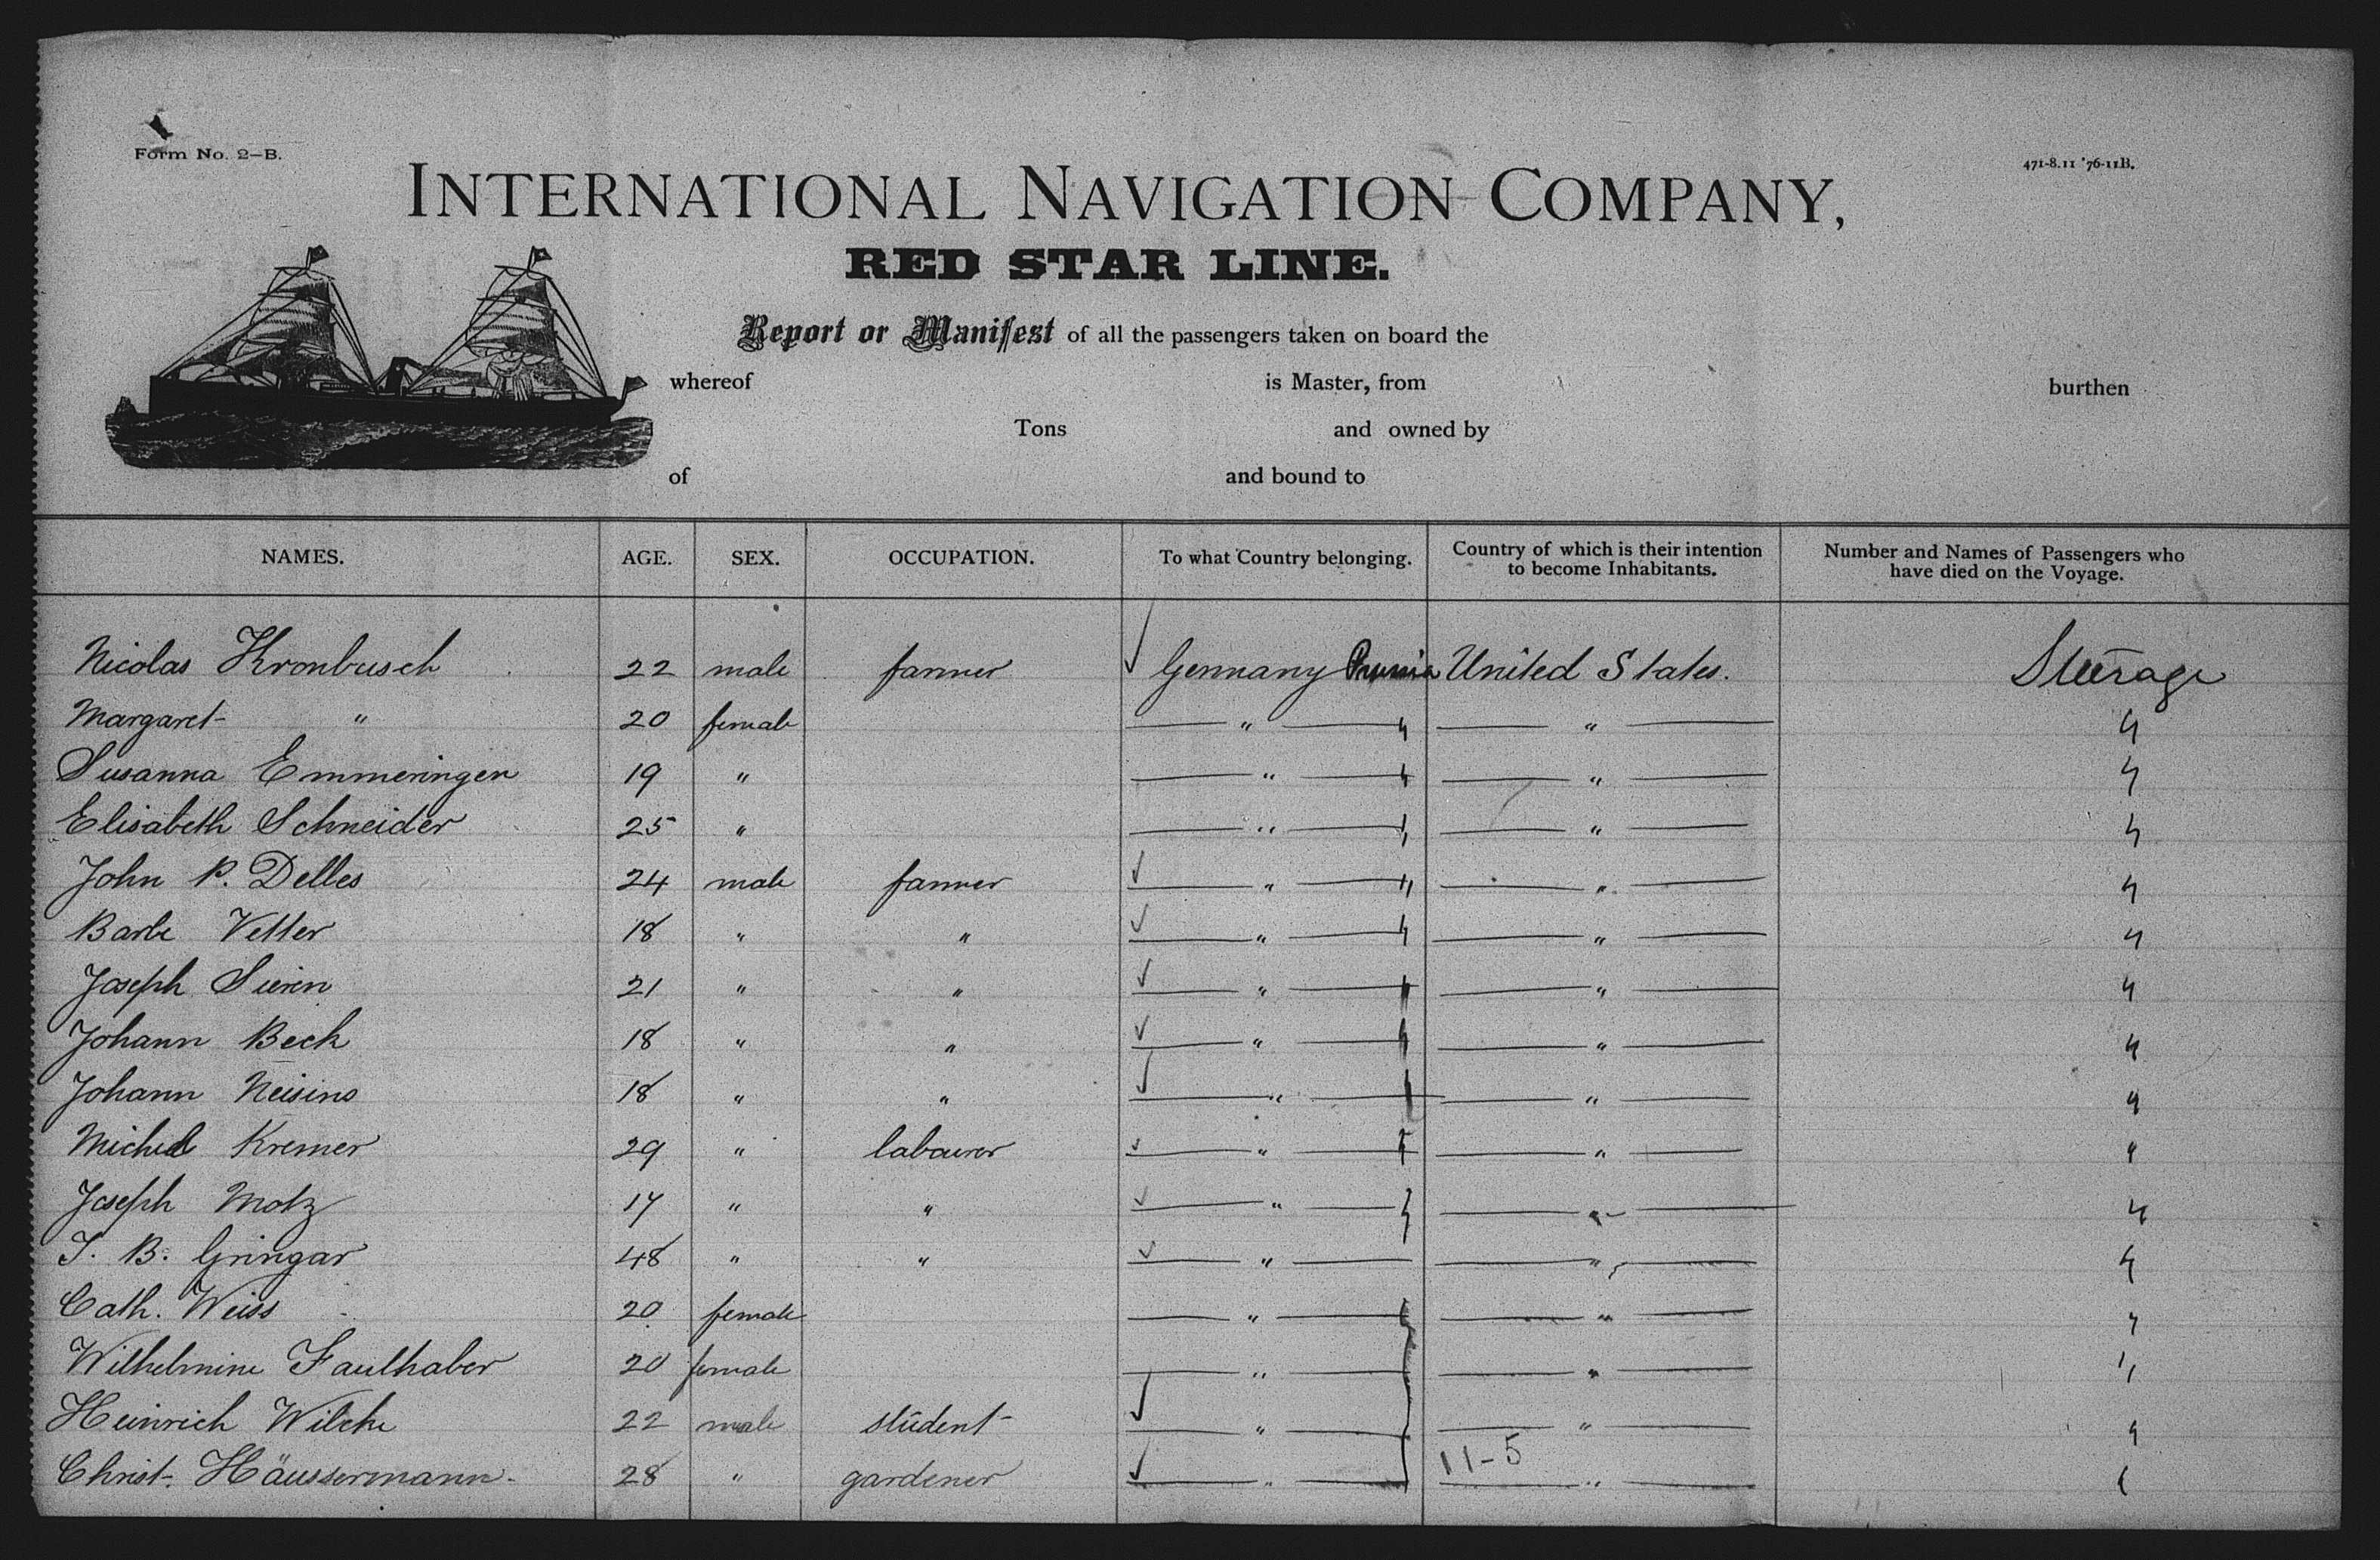 Form No. 2–B.
471-8.11 '76-11B.
INTERNATIONAL NAVIGATION COMPANY,
RED STAR LINE.
Report or Manifest of all the passengers taken on board the
whereof is Master, from burthen
Tons and owned by
of and bound to
NAMES. AGE. SEX. OCCUPATION. To what Country belonging. Country of which is their intention to become Inhabitants. Number and Names of Passengers who have died on the Voyage.
Nicolas Kronbusch 22 male farmer Germany Prussia United States. Steerage
Margaret " 20 female " " " "
Susanna Emmeringer 19 " " " " "
Elisabeth Schneider 25 " " " " "
John P. Delles 24 male farmer " " " "
Barbe Vetter 18 " " " " " "
Joseph Sieren 21 " " " " " "
Johann Beck 18 " " " " " "
Johann 18 " " " " "
Michel Kremer 29 " labourer " " " "
Joseph Motz 17 " " " " " "
J. B. Gringar 48 " " " " "
Cath. Weiss 20 female " " "
Wilhelmine Faulhaber 20 female " " "
Heinrich Wilcke 22 male student " " "
11-5
Christ. Häussermann 28 " gardener " " "